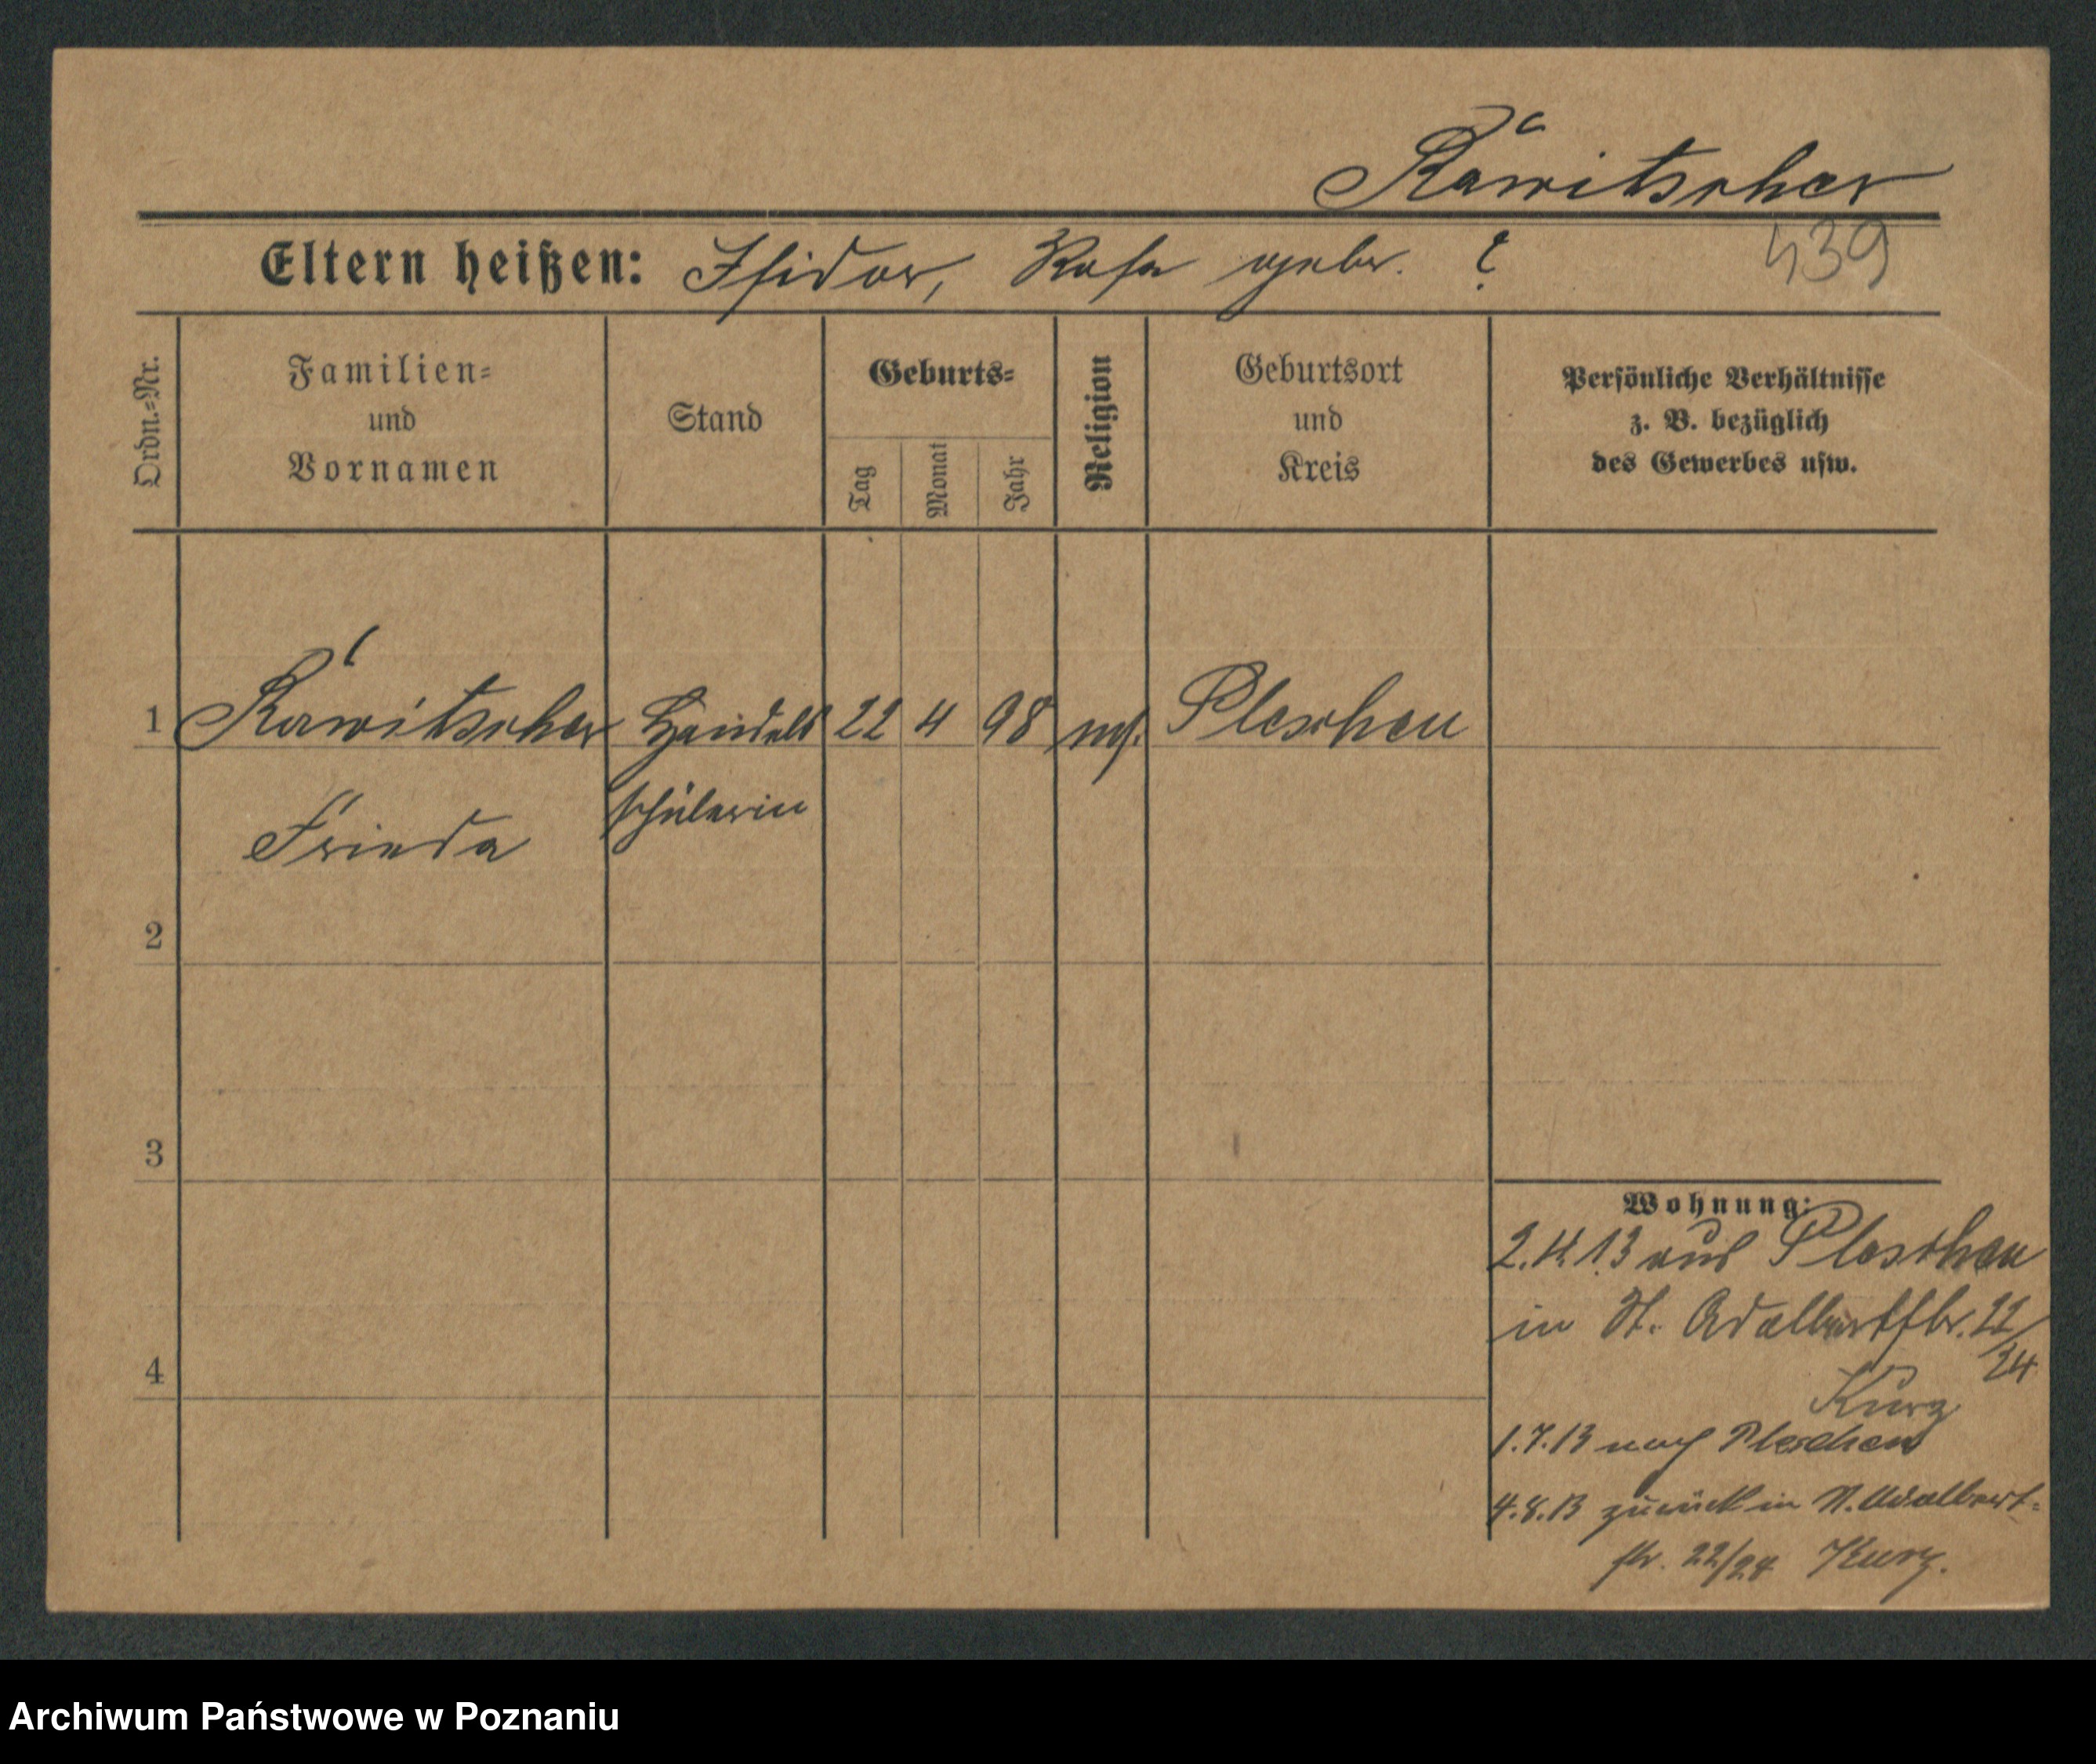 Rawitscher
439
Eltern heißen: Isidor, Rosa geber. ?
Ordn.=Nr.
Familien=
und
Vornamen
Stand
Geburts=
Tag
Monat
Jahr
Religion
Geburtsort
und
Kreis
Persönliche Verhältnisse
z. B. bezüglich
des Gewerbes usw.
1 Rawitscher Handels 22 4 98 mos. Pleschen
Frieda schülerin
2
3
4
Wohnung:
2.4.13 aus Pleschen
in St. Adalbertstr. 22/
24
Kurz
1.7.13 nach Pleschen
4.8.13 zurück in St. Adalbert=
str. 22/24 Kurz.
Archiwum Państwowe w Poznaniu